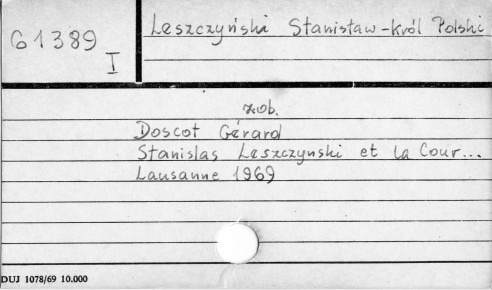 Leszczyński Stanisław - Król Polski
G 1389
I
zob.
Doscot Gérard
Stanislas Leszczynski et la Cour...
Lausanne 1969
DUJ 1078/69 10.000